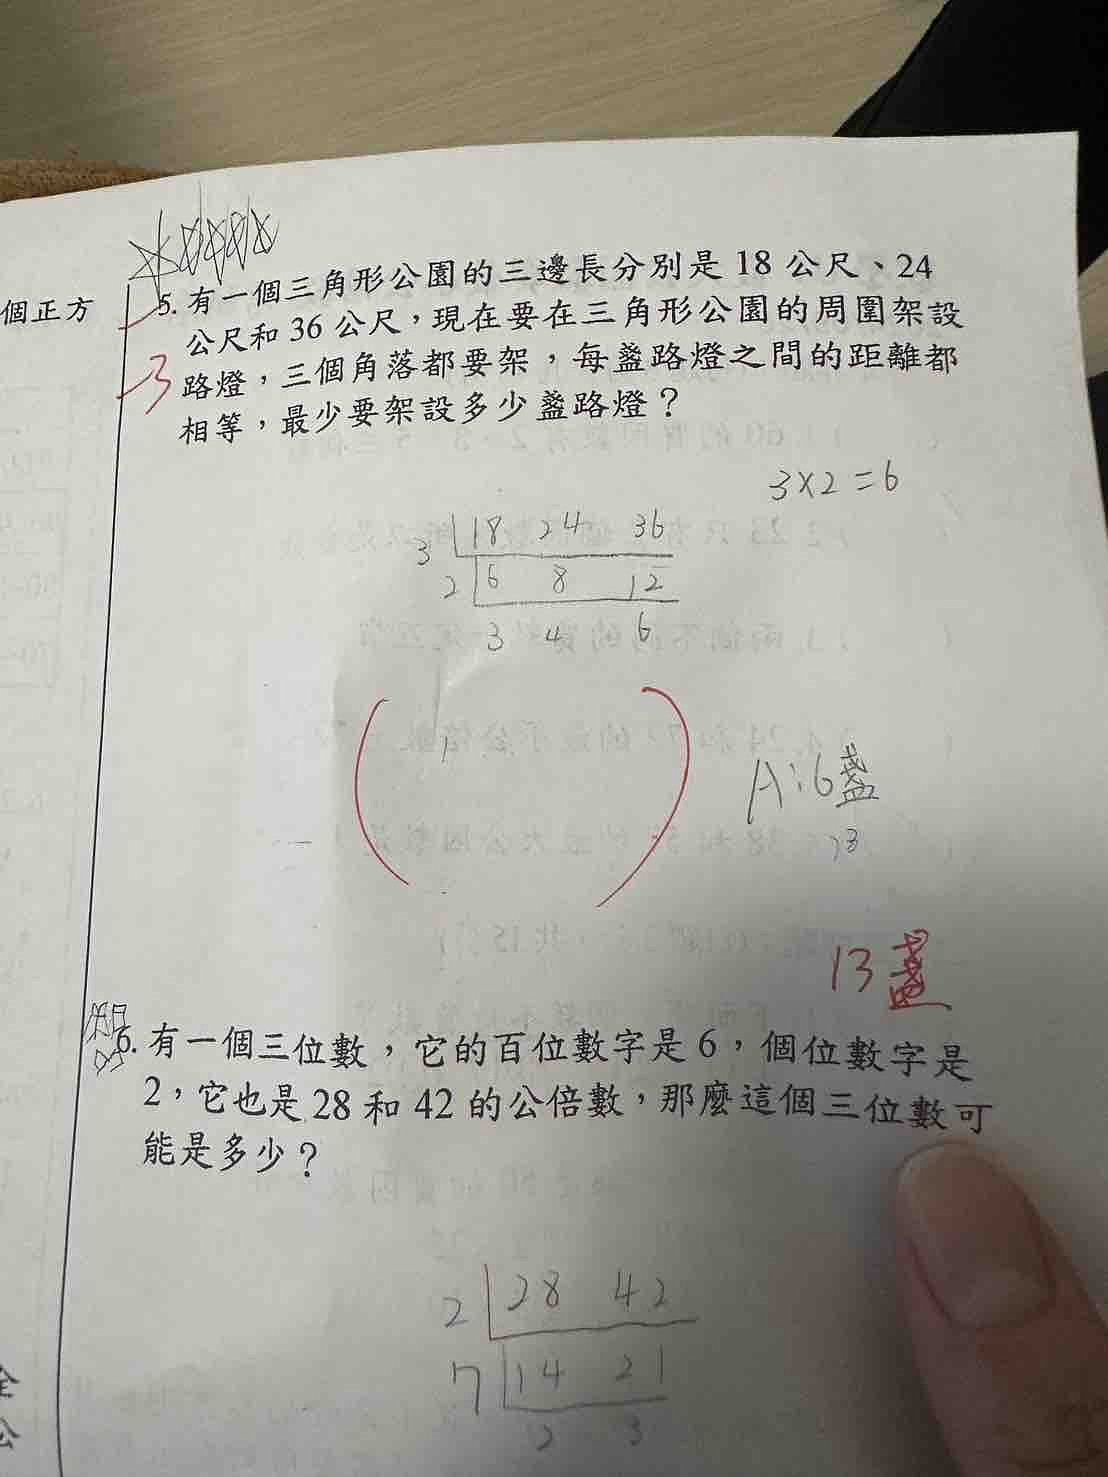 個正方
5. 有一個三角形公園的三邊長分別是 18 公尺、24
公尺和 36 公尺，現在要在三角形公園的周圍架設
路燈，三個角落都要架，每盞路燈之間的距離都
相等，最少要架設多少盞路燈？
-3
3×2=6
3 18 24 36
2 6 8 12
3 4 6
A:6盞
13
13盞
6. 有一個三位數，它的百位數字是 6，個位數字是
2，它也是 28 和 42 的公倍數，那麼這個三位數可
能是多少？
2 28 42
7 14 21
2 3